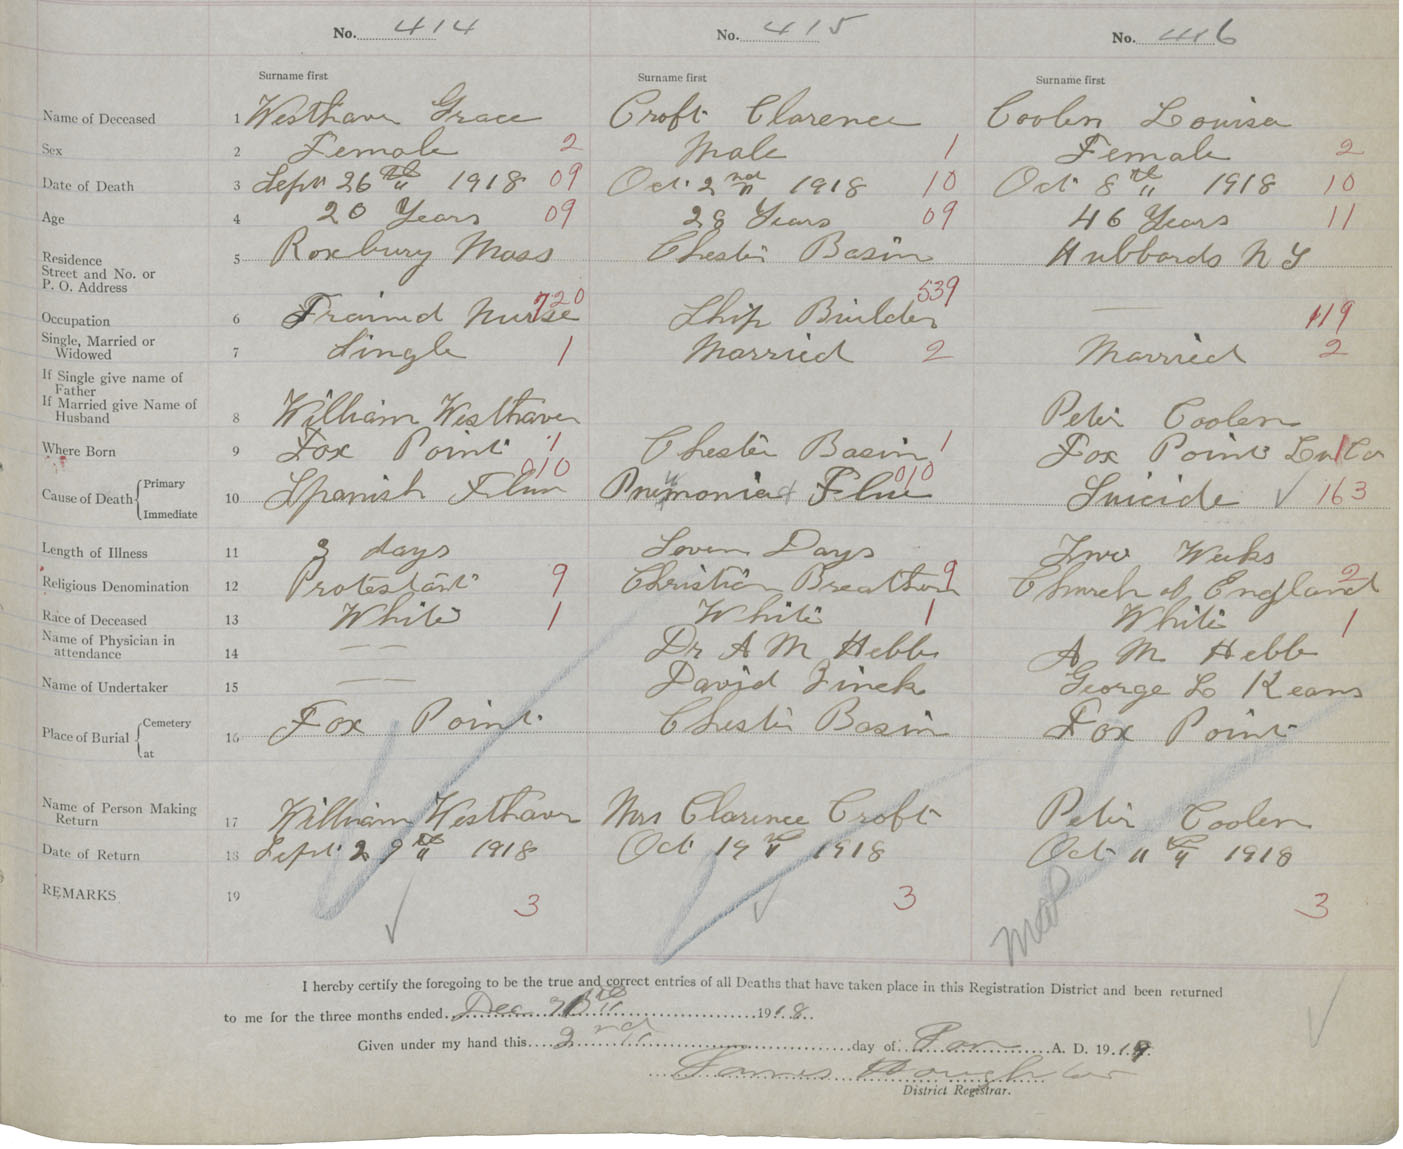 No. 414 No. 415 No. 416
Surname first Surname first Surname first
Name of Deceased 1 Westhaver Grace Croft Clarence Coolen Louisa
Sex 2 Female 2 Male 1 Female 2
Date of Death 3 Sept 26th 1918 09 Oct 2nd 1918 10 Oct 8th 1918 10
Age 4 20 Years 09 28 Years 09 46 Years 11
Residence
Street and No. or
P. O. Address 5 Roxbury Mass Chester Basin Hubbards N S
Occupation 6 Trained Nurse 720 Ship Builder 539 — 119
Single, Married or
Widowed 7 Single 1 Married 2 Married 2
If Single give name of
Father
If Married give Name of
Husband 8 William Westhaver Peter Coolen
Where Born 9 Fox Point 1 Chester Basin 1 Fox Point Lu Co
Cause of Death { Primary Immediate 10 Spanish Flu 010 Pneumonia & Flue 010 Suicide ✓ 163
Length of Illness 11 3 days Seven Days Two Weeks
Religious Denomination 12 Protestant 9 Christian Breathern 9 Church of England 2
Race of Deceased 13 White 1 White 1 White 1
Name of Physician in
attendance 14 — — Dr A M Hebb A M Hebb
Name of Undertaker 15 — — David Zinck George L Keans
Place of Burial { Cemetery at 16 Fox Point Chester Basin Fox Point
Name of Person Making
Return 17 William Westhaver Mrs Clarence Croft Peter Coolen
Date of Return 18 Sept 29th 1918 Oct 19th 1918 Oct 11th 1918
REMARKS 19 3 3 3
I hereby certify the foregoing to be the true and correct entries of all Deaths that have taken place in this Registration District and been returned
to me for the three months ended Dec 31st 1918.
Given under my hand this 2nd day of Jan A. D. 1919.
James
District Registrar.